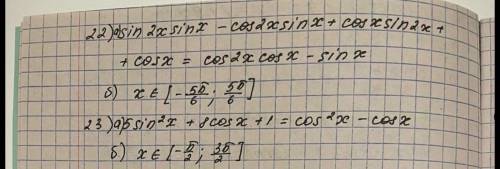 22)а) sin 2x sin x - cos 2x sin x + cos x sin 2x +
+ cos x = cos 2x cos x - sin x
б) x ∈ [-5π/6; 5π/6]
23)а) 5 sin² x + 8 cos x + 1 = cos² x - cos x
б) x ∈ [-π/2; 3π/2]